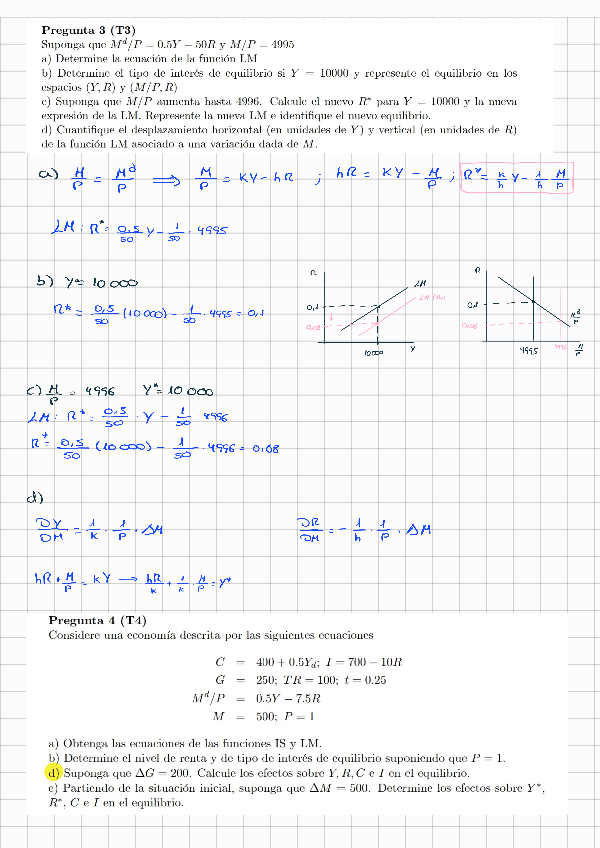 Pregunta 3 (T3)
Suponga que M^d/P = 0.5Y − 50R y M/P = 4995
a) Determine la ecuación de la función LM
b) Determine el tipo de interés de equilibrio si Y = 10000 y represente el equilibrio en los
espacios (Y, R) y (M/P, R)
c) Suponga que M/P aumenta hasta 4996. Calcule el nuevo R* para Y = 10000 y la nueva
expresión de la LM. Represente la nueva LM e identifique el nuevo equilibrio.
d) Cuantifique el desplazamiento horizontal (en unidades de Y) y vertical (en unidades de R)
de la función LM asociado a una variación dada de M.
a) M/P = M^d/P ⟹ M/P = KY - hR ; hR = KY - M/P ; R* = k/h Y - 1/h · M/P
LM: R* = 0,5/50 Y - 1/50 · 4995
b) Y = 10 000
R* = 0,5/50 (10 000) - 1/50 · 4995 = 0,1
R
LM
LM (0,1
0,1
0,08
10000
Y
R
0,1
0,08
M^d/P
4995
4996
M/P
c) M/P = 4996 Y* = 10 000
LM: R* = 0,5/50 · Y - 1/50 4996
R* = 0,5/50 (10 000) - 1/50 · 4996 = 0,08
d)
DY/DM = 1/k · 1/P · ΔM
DR/DM = - 1/h · 1/P · ΔM
hR + M/P = KY → hR/k + 1/k · M/P = Y*
Pregunta 4 (T4)
Considere una economía descrita por las siguientes ecuaciones
C = 400 + 0.5Y_d; I = 700 − 10R
G = 250; TR = 100; t = 0.25
M^d/P = 0.5Y − 7.5R
M = 500; P = 1
a) Obtenga las ecuaciones de las funciones IS y LM.
b) Determine el nivel de renta y de tipo de interés de equilibrio suponiendo que P = 1.
d) Suponga que ΔG = 200. Calcule los efectos sobre Y, R, C e I en el equilibrio.
e) Partiendo de la situación inicial, suponga que ΔM = 500. Determine los efectos sobre Y*,
R*, C e I en el equilibrio.